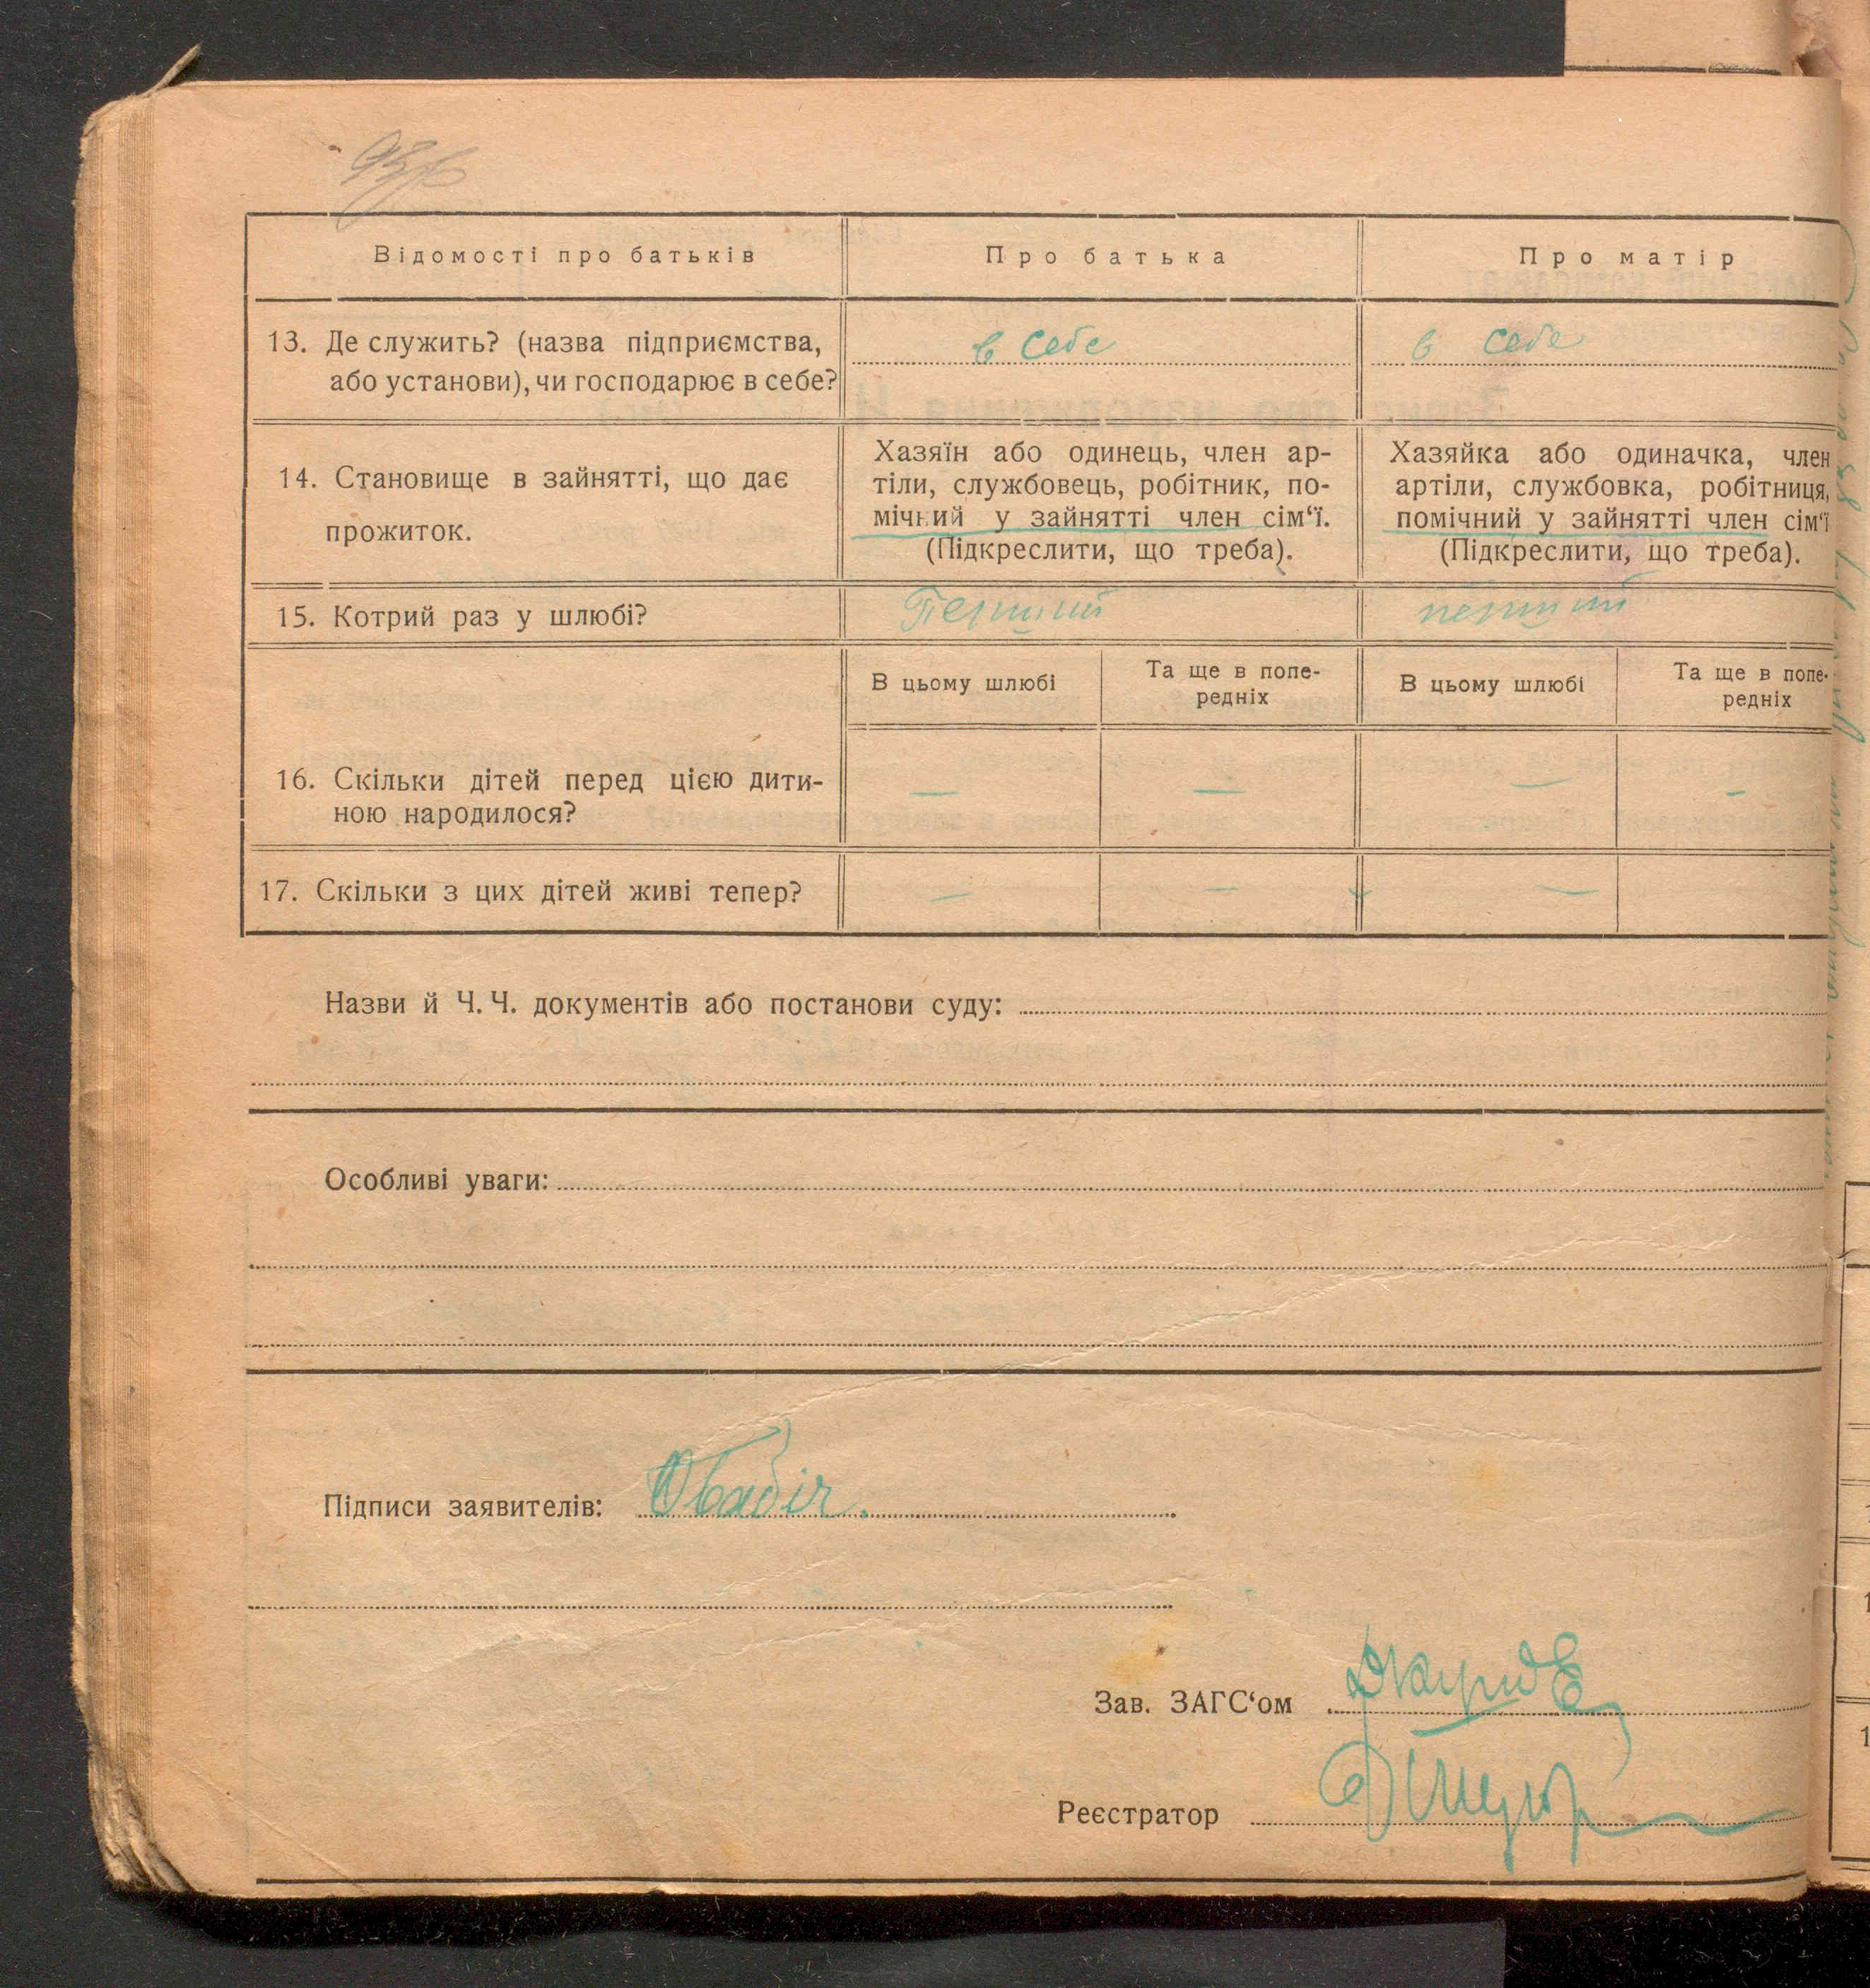 Відомості про батьків
Про батька
Про матір
13. Де служить? (назва підприємства,
або установи), чи господарює в себе?
в себе
в себе
14. Становище в зайнятті, що дає
прожиток.
Хазяїн або одинець, член ар-
тіли, службовець, робітник, по-
мічний у зайнятті член сім‘ї.
(Підкреслити, що треба).
Хазяйка або одиначка, член
артіли, службовка, робітниця,
помічний у зайнятті член сім‘ї
(Підкреслити, що треба).
15. Котрий раз у шлюбі?
Перший
перший
В цьому шлюбі
Та ще в попе-
редніх
В цьому шлюбі
Та ще в попе-
редніх
16. Скільки дітей перед цією дити-
ною народилося?
—
—
—
—
17. Скільки з цих дітей живі тепер?
—
—
—
Назви й Ч. Ч. документів або постанови суду:
Особливі уваги:
Підписи заявителів:
Зав. ЗАГС‘ом
Реєстратор